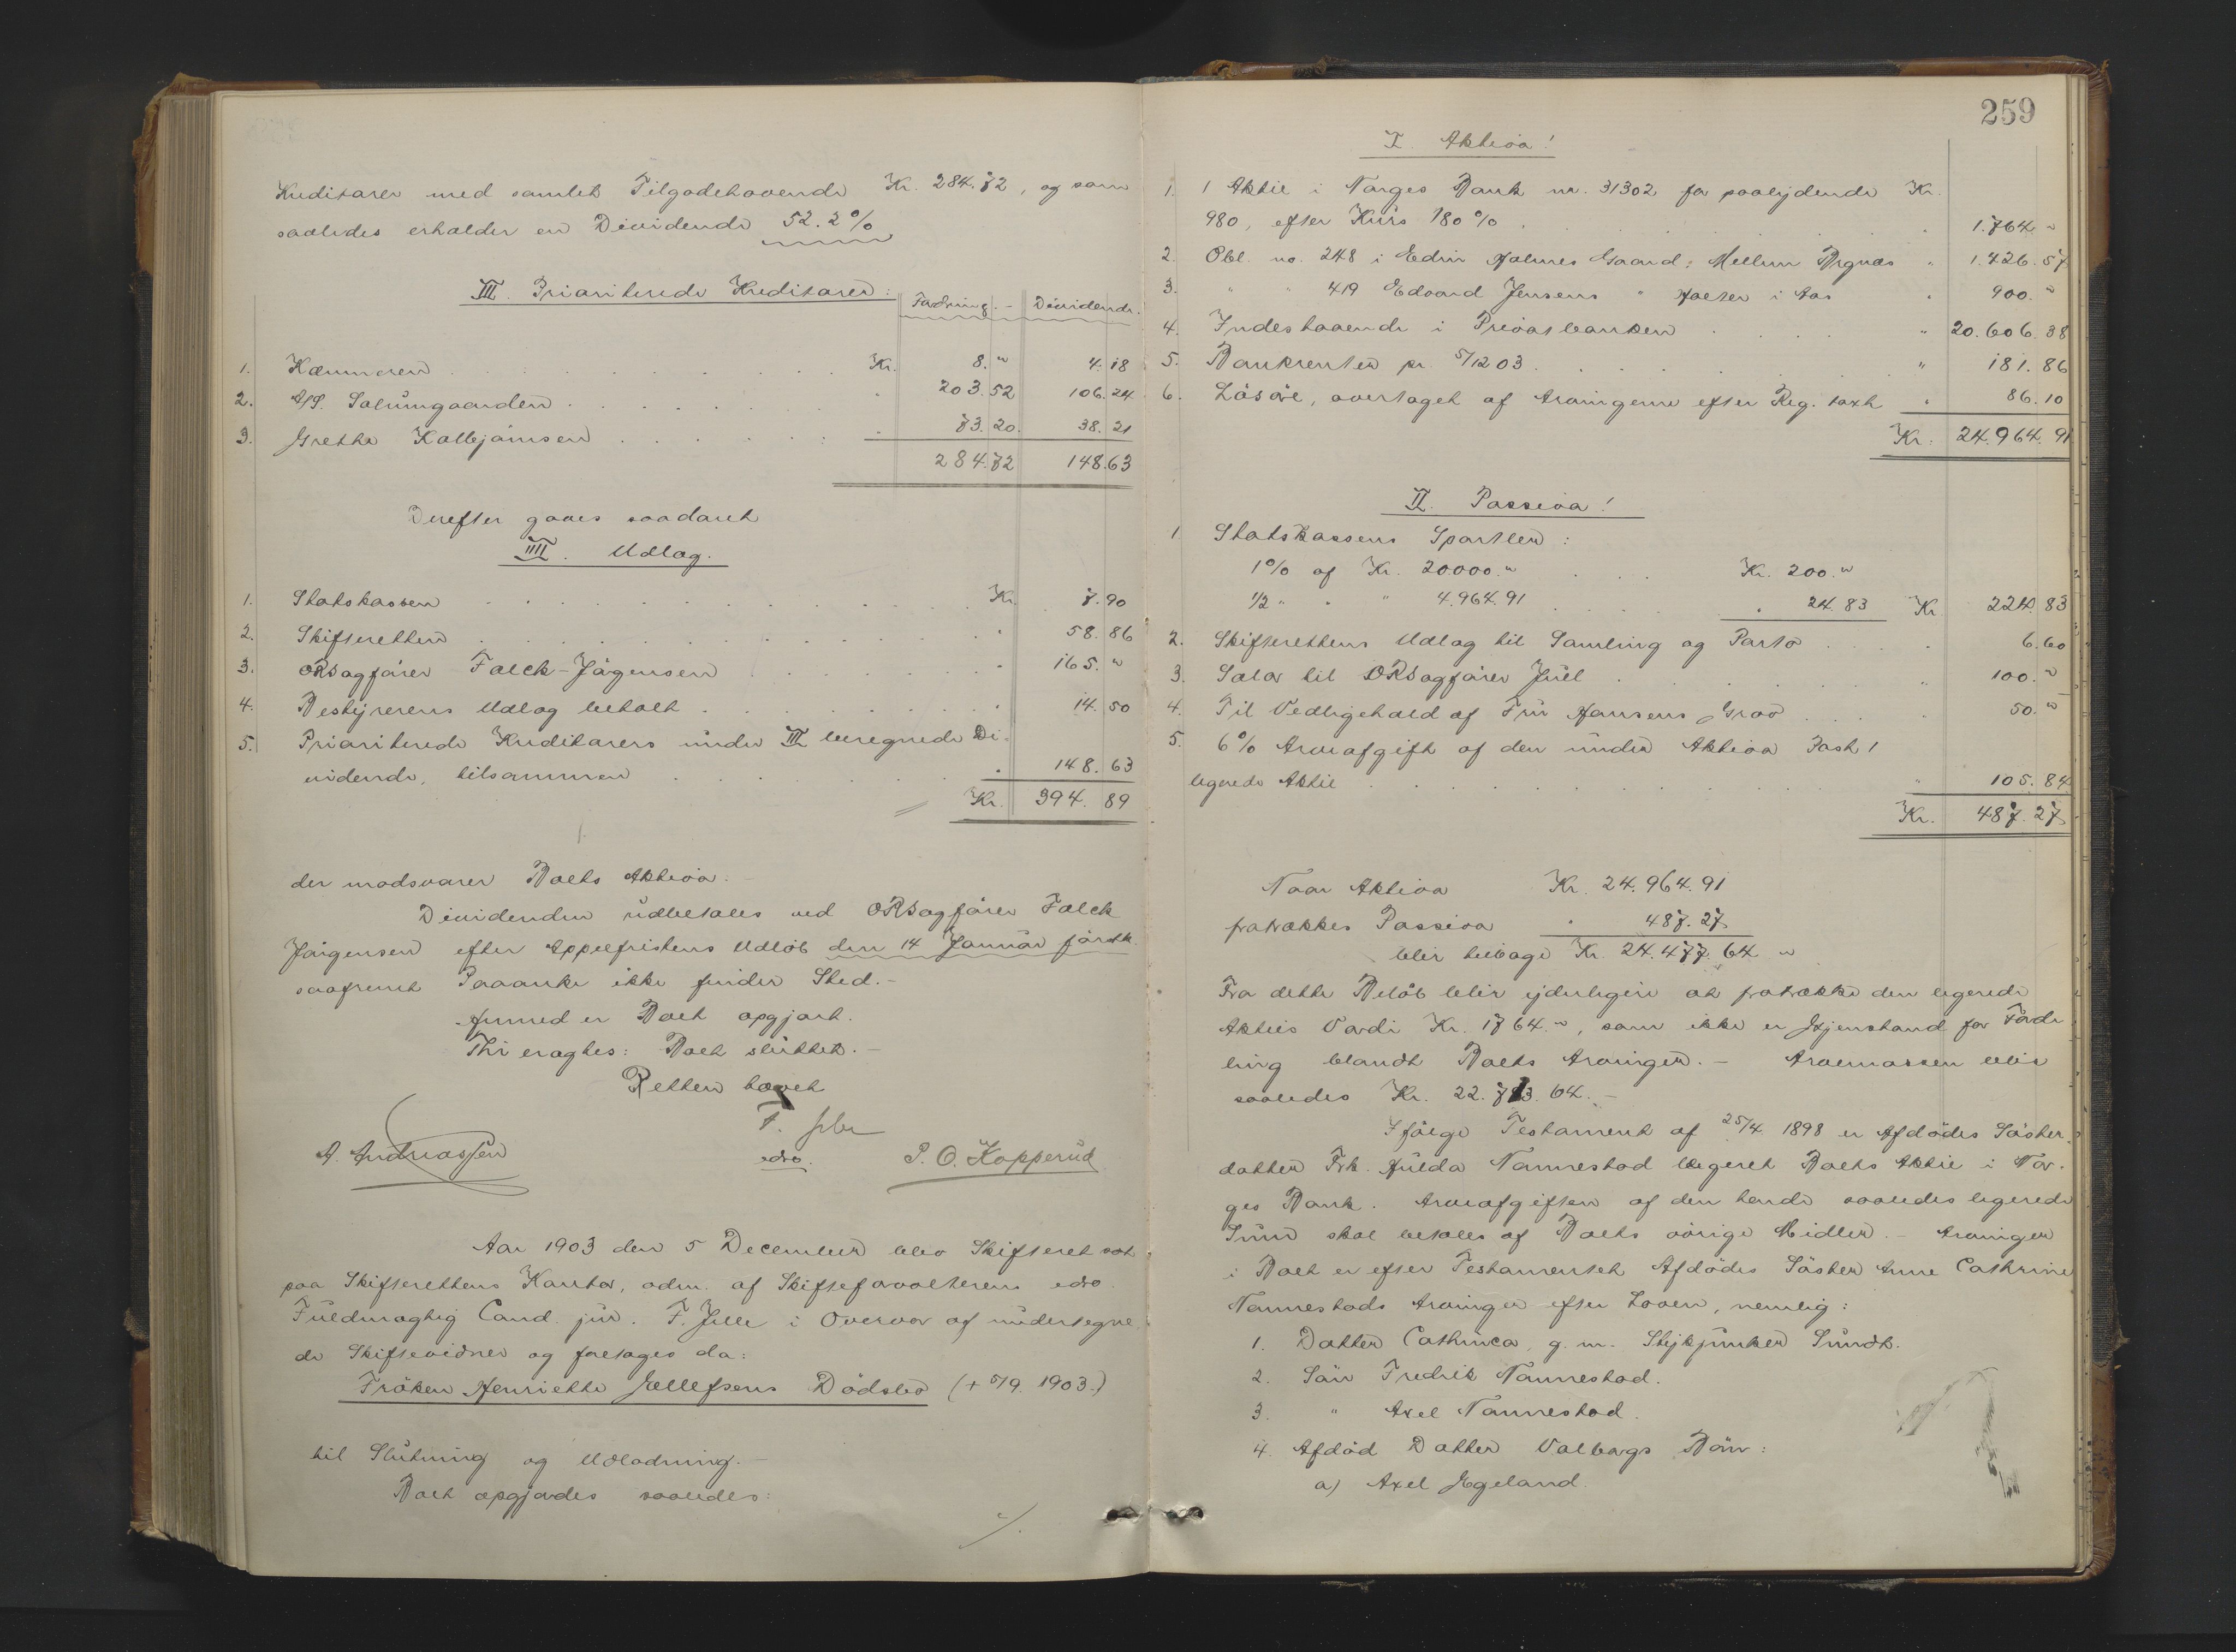 Kreditorer med samlet Tilgodehavende Kr. 284.72, og som
saaledes erholder en Dividende 52.2%
III. Prioriterede Kreditorer:
Fordring. - Dividende.
1. Kæmneren . . . Kr. 8." 4.18
2. A/S. Solumgaarden . . . " 203.52 106.24
3. Grethe Kallejomsen . . . " 73.20. 38.21
284.72 148.63
Derefter gaves saadant
IIII. Udlæg.
1. Statskassen . . . Kr. 7.90
2. Skifteretten . . . " 58.86
3. ORSagfører Falck-Jörgensen . . . " 165."
4. Bestyrerens Udlæg betalt . . . " 14.50
5. Prioriterede Kreditorers under III beregnede Di-
vidende, tilsammen . . . " 148.63
Kr. 394.89
der modsvarer Boets Aktiva.
Dividenden udbetales ved ORSagfører Falck
Jörgensen efter Appelfristens Udlöb den 14 Januar förstk.
saafremt Paaanke ikke finder Sted.-
Hermed er Boet opgjort.
Thi eragtes: Boet sluttet.-
Retten hævet
F. Jelle
edv.
A. Andreassen
P. O. Kopperud
Aar 1903 den 5 December blev Skifteret sat
paa Skifterettens Kontor, adm. af Skifteforvalterens edv.
Fuldmægtig Cand. jur. F. Jelle i Overvær af undertegne-
de Skiftevidner og foretages da:
Fröken Henriette Ellefsens Dödsbo († 5/9 1903.)
til Slutning og Udlodning.-
Boet opgjordes saaledes:
./.
259
I. Aktiva!
1. 1 Aktie i Norges Bank nr. 31302 for paalydende Kr.
980, efter Kurs 180% . . . 1.764 "
2. Obl. no. 248 i Edvin Holmes Gaard: Mellem Bignæs " 1.426.57
3. " " 419 Edvard Jensens " Holter i Aas " 900."
4. Indestaaende i Privatbanken . . . " 20.606.38
5. Bankrenter pr. 5/12 03 . . . " 181.86
6. Lösöre, overtaget af Arvingerne efter Reg. taxt " 86.10
Kr. 24.964.91
II. Passiva!
1 Statskassens Sportler:
1% af Kr. 20000." . . . Kr. 200."
1/2 " " " 4.964.91 . . . " 24.83 Kr. 224.83
2. Skifterettens Udlæg til Samling og Porto . . . 6.60
3. Salær til ORSagfører Juel . . . " 100."
4. Til Vedligehold af Fru Hansens Grav . . . " 50."
5. 6% Arveafgift af den under Aktiva Post 1
legerede Aktie . . . " 105.84
Kr. 487.27
Naar Aktiva Kr. 24.964.91
fratrækkes Passiva " 487.27
blir tilbage Kr. 24.477.64 "
Fra dette Belöb blir yderligere at fratrække den legerede
Akties Værdi Kr. 1764.", som ikke er Gjenstand for Forde-
ling blandt Boets Arvinger. - Arvemassen blir
saaledes Kr. 22.713.64.-
Ifölge Testament af 25/4 1898 er Afdödes Söster-
datter Frk. Hulda Nannestad legeret Boets Aktie i Nor-
ges Bank. Arveafgiften af den hende saaledes legerede
Sum skal betales af Boets övrige Midler. - Arvinger
i Boet er efter Testamentet Afdödes Söster Anne Cathrine
Nannestads Arvinger efter Loven, nemlig:
1. Datter Cathinca, g. m. Stykjunker Sundt.
2. Sön Fredrik Nannestad.
3. " Axel Nannestad.
4. Afdöd Datter Valborgs Börn:
a) Axel Egeland.